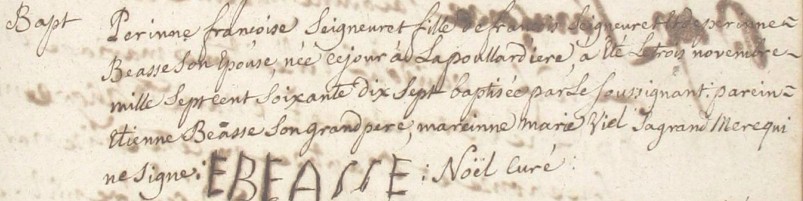 Bapt Perinne francoise Seigneuret fille de francois Seigneuret Et de perinne
Beasse Son Epouse née cejour à La poullardiere, a été Le trois novembre
mille Sept cent Soixante dix Sept baptisée par Le Soussignant: parein
Etienne Beasse Son grand pere, mareinne marie Viel Sa grand Mere qui
ne Signe: EBEASSE: Noël Curé: